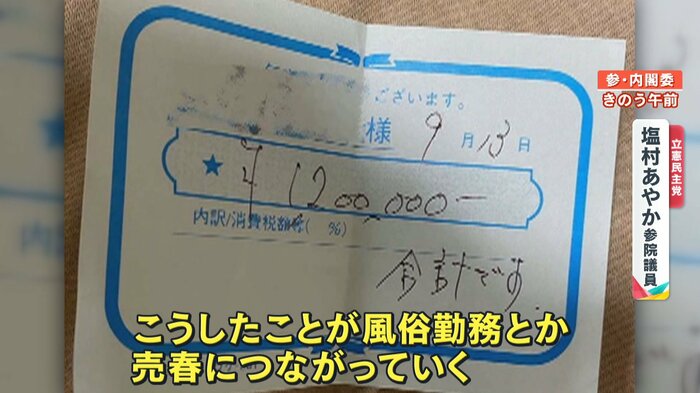 参・内閣委
きのう午前
立憲民主党
塩村あやか 参院議員
ございます。
様 9月13日
★ ¥1200,000-
内訳/消費税額等( %)
合計です
こうしたことが風俗勤務とか
売春につながっていく